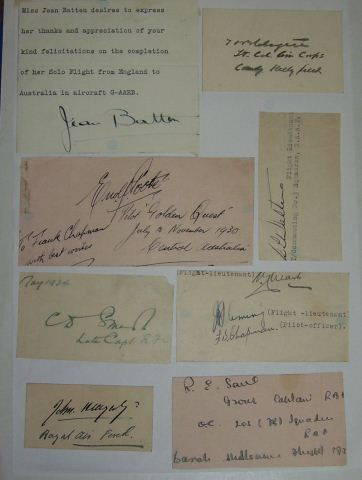 Miss Jean Batten desires to express
her thanks and appreciation of your
kind felicitations on the completion
of her Solo Flight from England to
Australia in aircraft G-AARB.
Jean Batten
Lt. Col Air Corps
Errol Coote
Pilot "Golden Quest"
July to November 1930
Central Australia
To Frank Chapman
with best wishes
Flight Lieutenant
Commanding No.3 Squadron, R.A.A.F.
May 1934
C D
late Capt. R.F.C
Flight-lieutenant)
(Flight-lieutenant)
F S Chapman. (Pilot-officer).
John
Royal Air Force.
R. E. Saul
Group Captain RAF
O.C. 203 (FB) Squadron
RAF
Flight 193